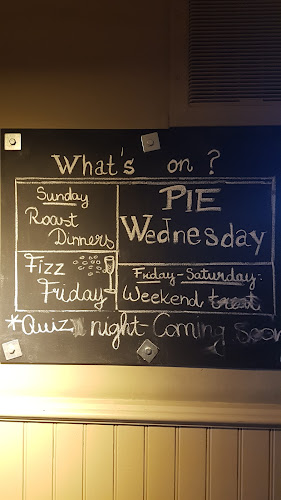 What's on?
Sunday
Roast
Dinners
PIE
Wednesday
Fizz
Friday
Friday-Saturday:
Weekend treat
*Quiz night Coming Soon